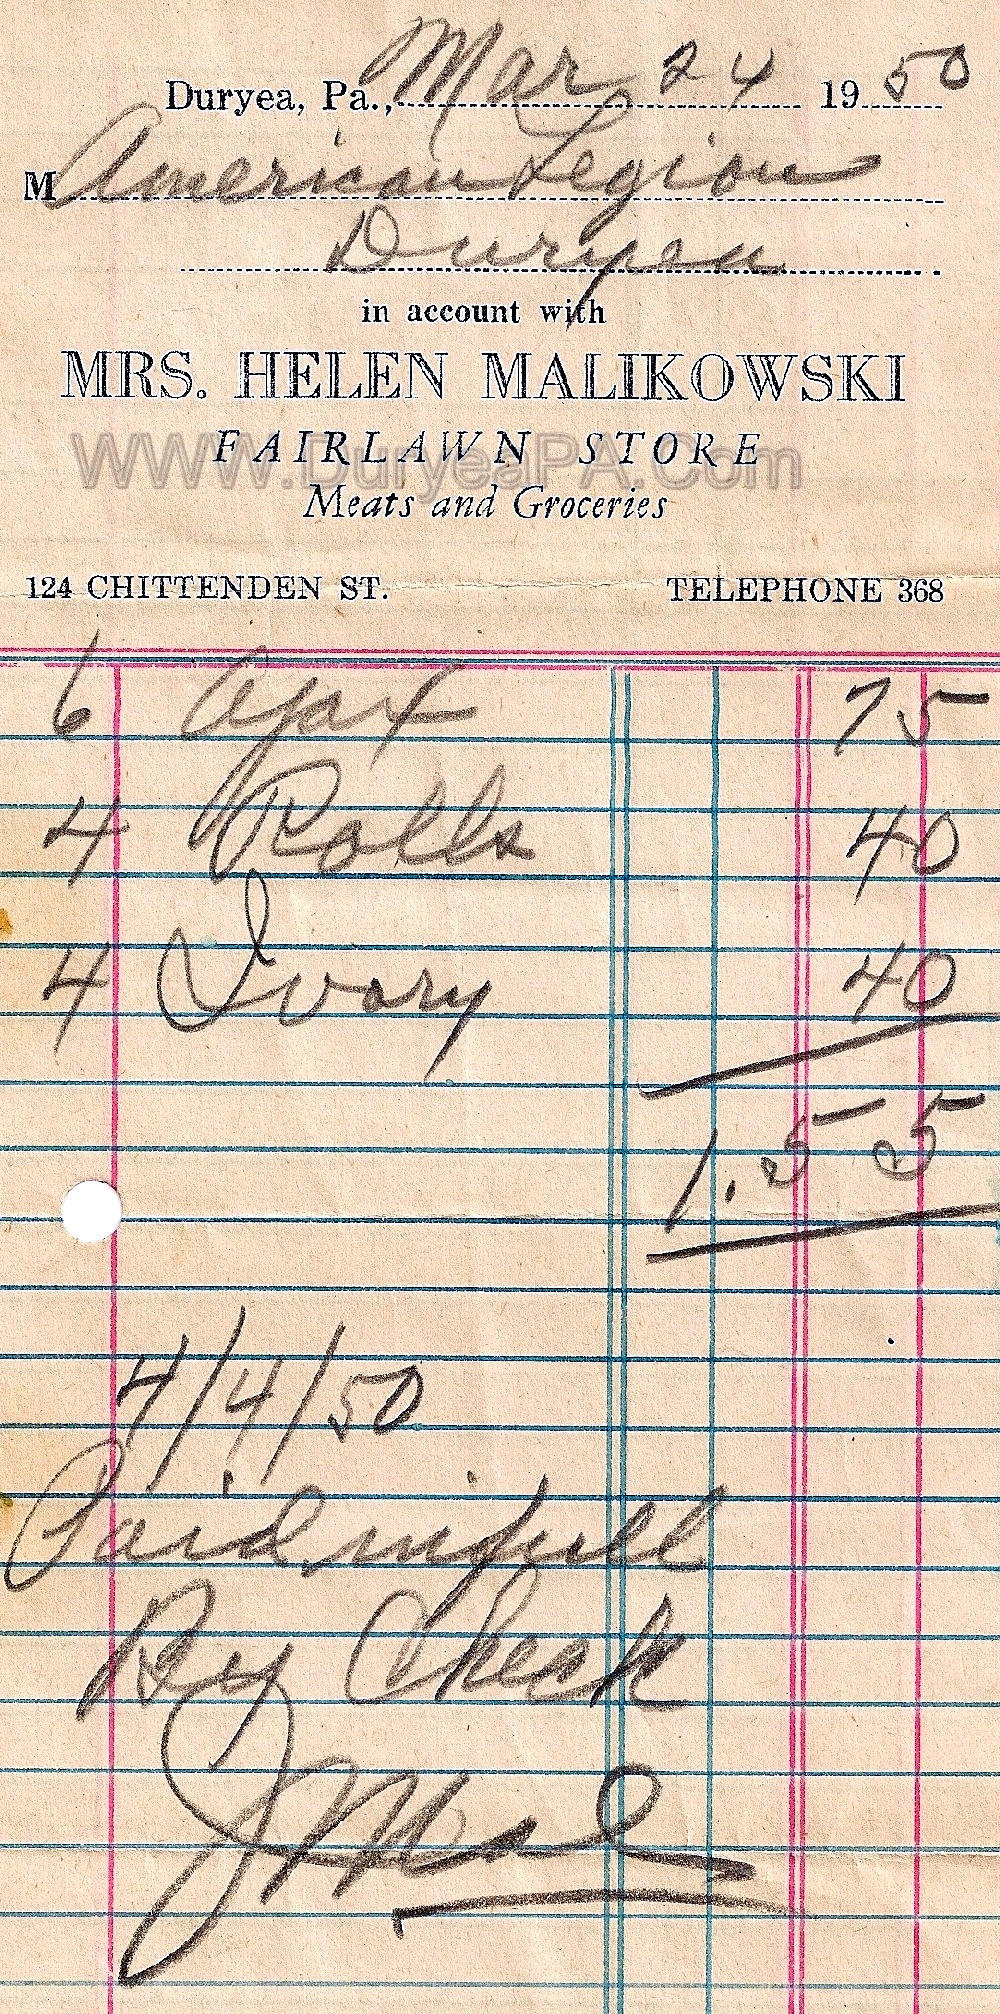 Duryea, Pa., Mar 24 1950
M American Legion
Duryea
in account with
MRS. HELEN MALIKOWSKI
FAIRLAWN STORE
WWW.DuryeaPA.Com
Meats and Groceries
124 CHITTENDEN ST. TELEPHONE 368
6 Ajax 75
4 Rolls 40
4 Ivory 40
1.55
4/4/50
Paid in full
By Check